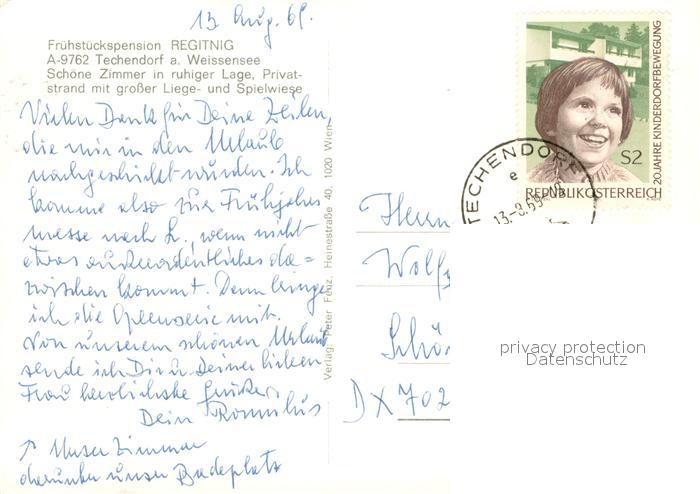 13. Aug. 69.
Frühstückspension REGITNIG
A-9762 Techendorf a. Weissensee
Schöne Zimmer in ruhiger Lage, Privat-
strand mit großer Liege- und Spielwiese
Vielen Dank für Deine Zeilen,
die mir in den Urlaub
nachgeschickt wurden. Ich
komme also zur Frühjahrs
messe nach L., wenn nicht
etwas außerordentliches da=
zwischen kommt. Dann bringe
ich die Opernserie mit.
Von unserem schönen Urlaub
sende ich Dir u. Deiner lieben
Frau herzlichste Grüße
Dein Romulus
↗ Unser Zimmer
darunter unser Badeplatz
Verlag: Peter Fenz, Heinestraße 40, 1020 Wien
S2
20 JAHRE KINDERDORFBEWEGUNG
REPUBLIK ÖSTERREICH
TECHENDORF
e
13.-8.69
Herrn
Wolfg
Schö
DX 702
privacy protection
Datenschutz